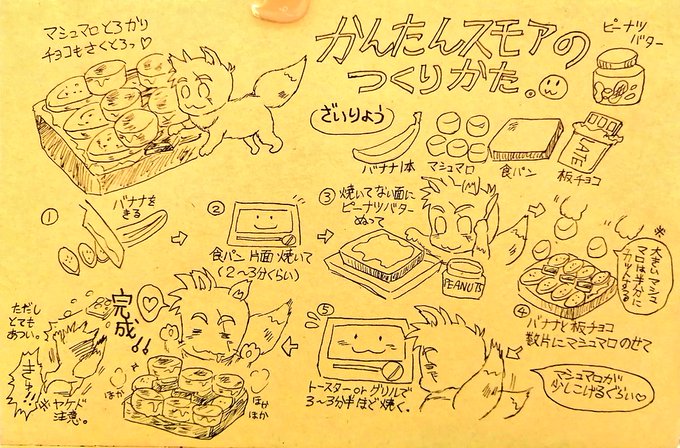 マシュマロとろかり
チョコもさくとろっ♡
かんたんスモアの
つくりかた。
ピーナツ
バター
ざいりょう
バナナ1本
マシュマロ
食パン
LATE
板チョコ
①
バナナを
きる
②
食パン片面焼いて
(2〜3分くらい)
③焼いてない面に
ピーナツバター
ぬって
PEANUTS
※
大きいマシュマロは半分に
カットする
④
バナナと板チョコ
数片にマシュマロのせて
⑤
トースターorグリルで
3〜3分半ほど焼く。
マシュマロが
少しこげるぐらい♡
完成!!
♡
ほか
ほか
ほか
ただし
とても
あつい。
※ヤケド
注意。